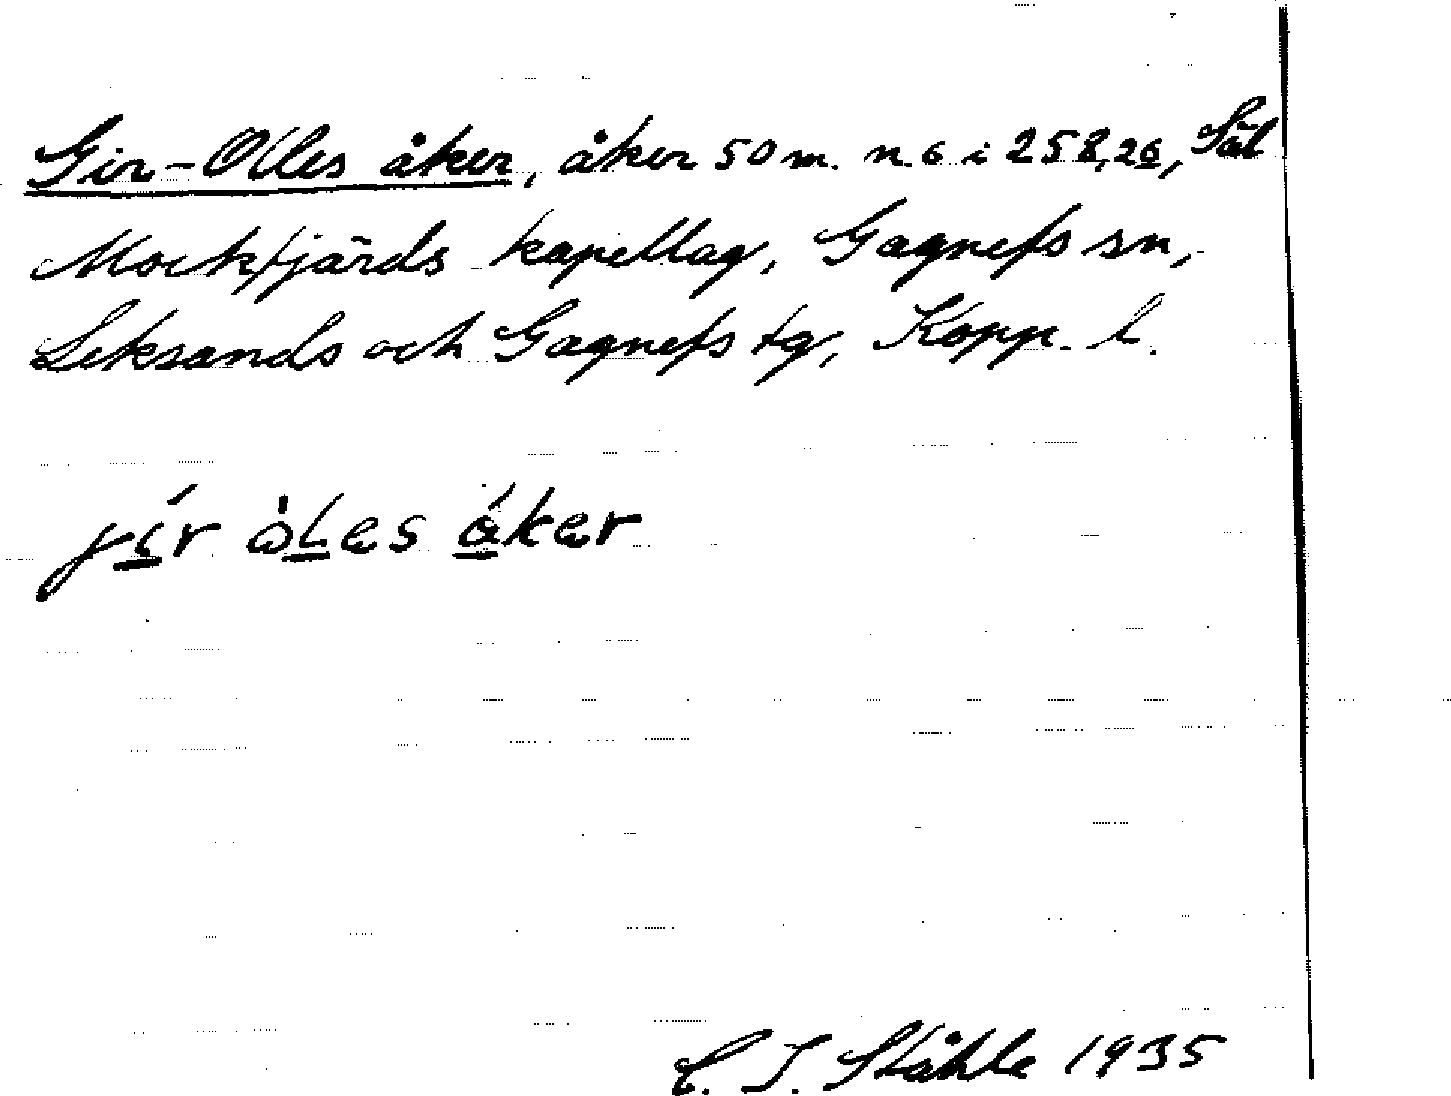 Gir-Olles åker, åker 50 m. n. 6 i 258,26, Säl
Mockfjärds kapellag, Gagnefs sn,
Leksands och Gagnefs tg, Kopp. l.
jír òles áker
C. I. Ståhle 1935